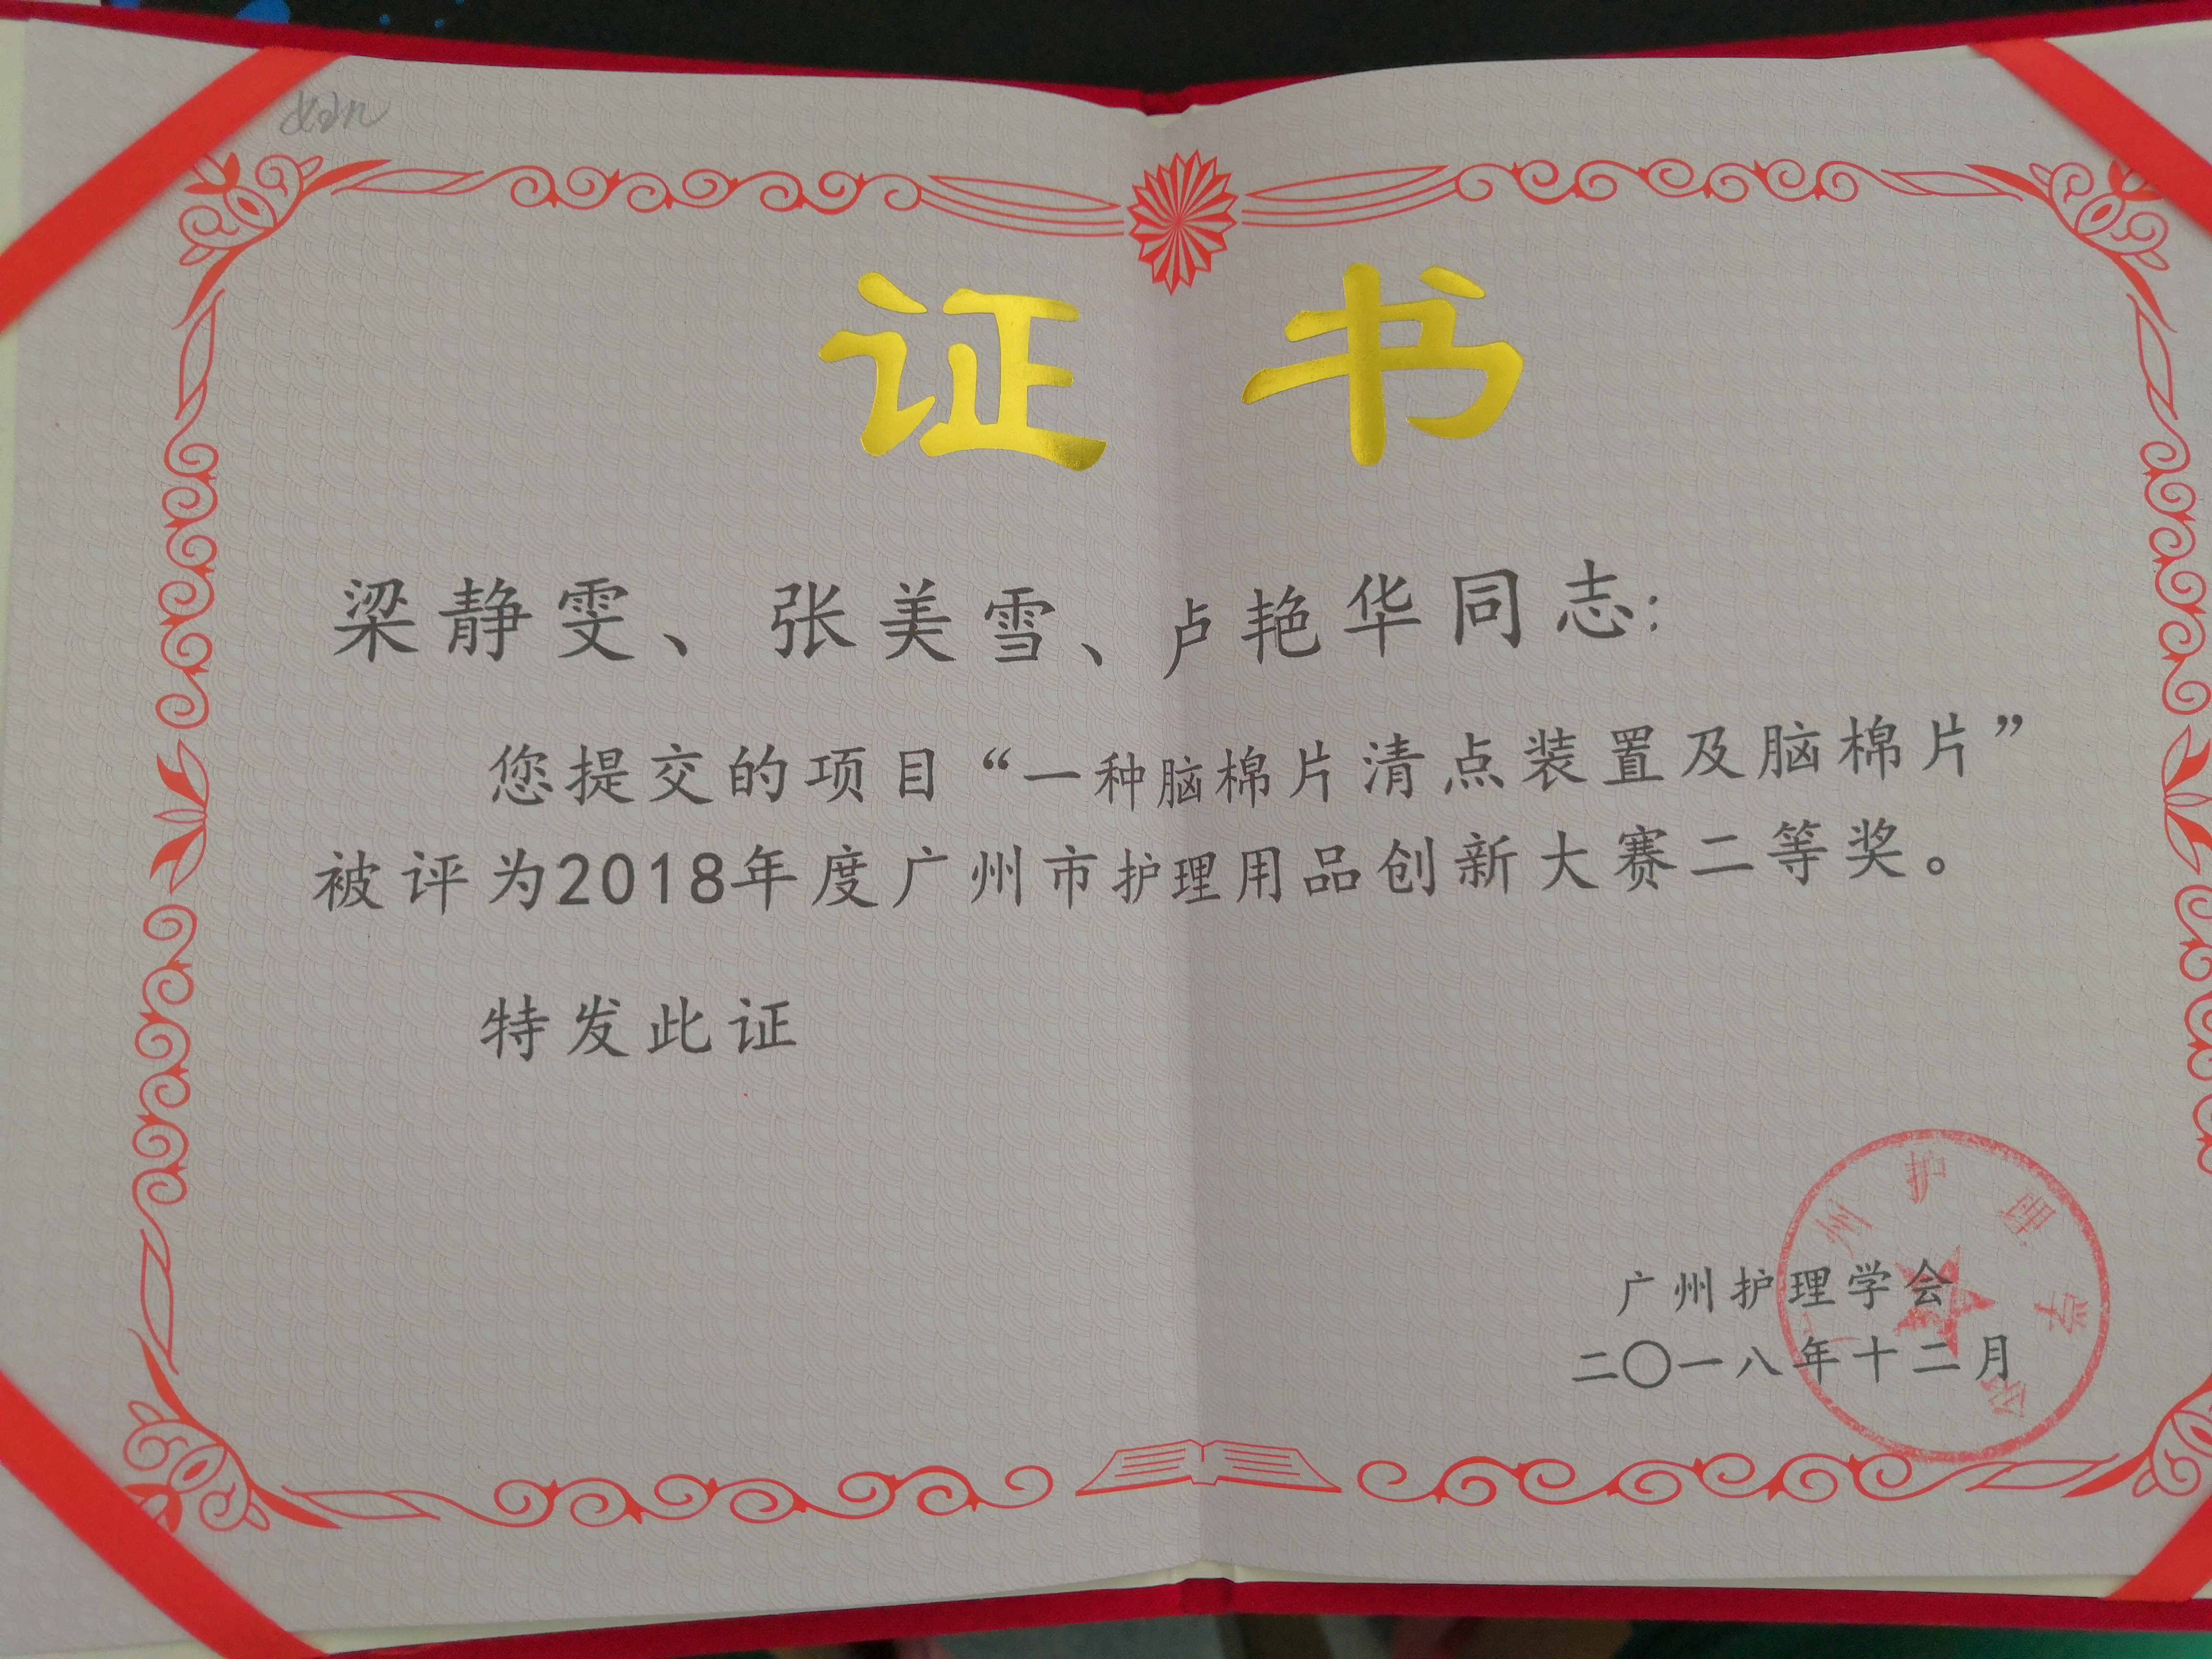 证书
梁静雯、张美雪、卢艳华同志：
您提交的项目“一种脑棉片清点装置及脑棉片”
被评为2018年度广州市护理用品创新大赛二等奖。
特发此证
广州护理学会
二〇一八年十二月
广州护理学会